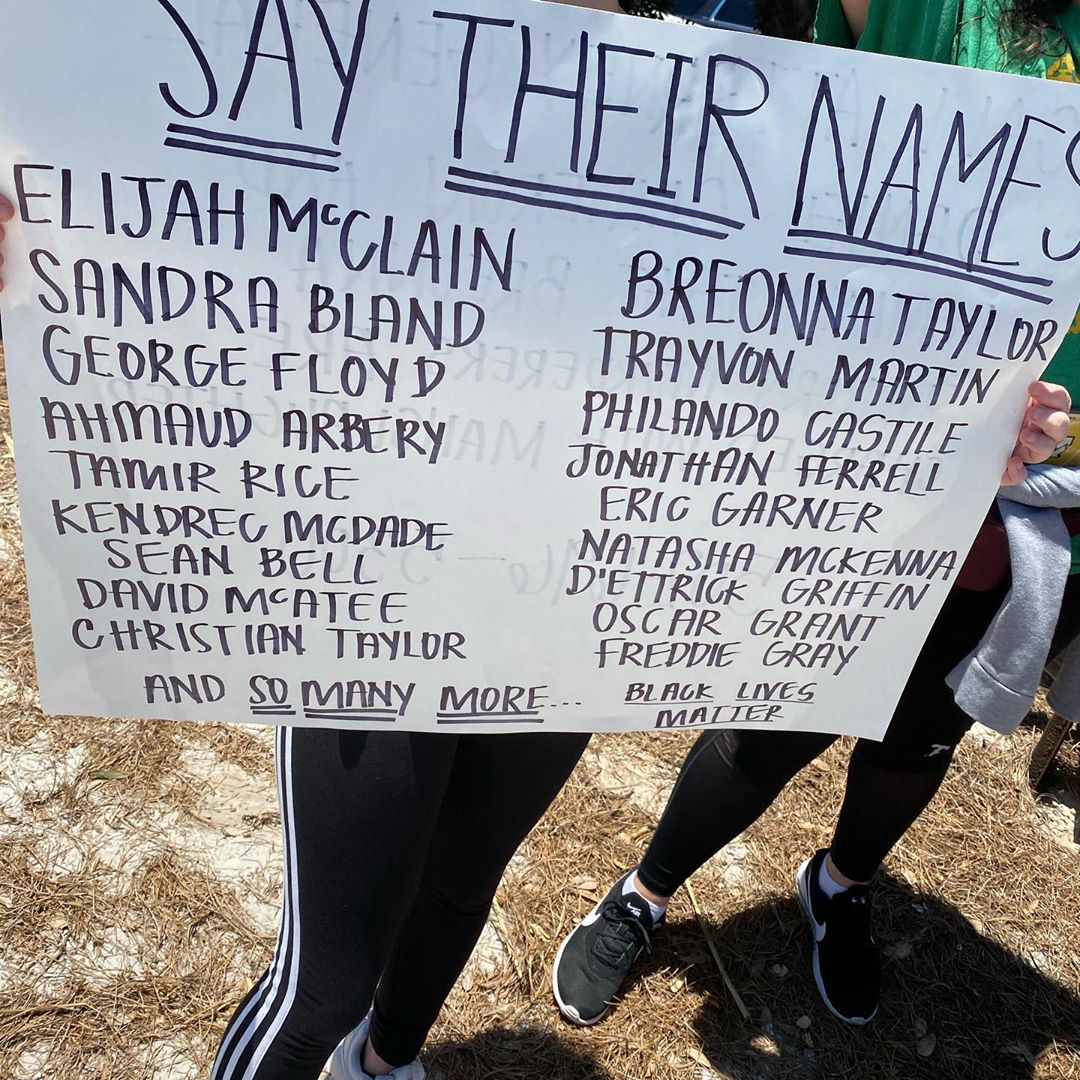 SAY THEIR NAMES
ELIJAH McCLAIN
SANDRA BLAND
GEORGE FLOYD
AHMAUD ARBERY
TAMIR RICE
KENDREC MCDADE
SEAN BELL
DAVID McATEE
CHRISTIAN TAYLOR
AND SO MANY MORE...
BREONNA TAYLOR
TRAYVON MARTIN
PHILANDO CASTILE
JONATHAN FERRELL
ERIC GARNER
NATASHA MCKENNA
D'ETTRICK GRIFFIN
OSCAR GRANT
FREDDIE GRAY
BLACK LIVES
MATTER